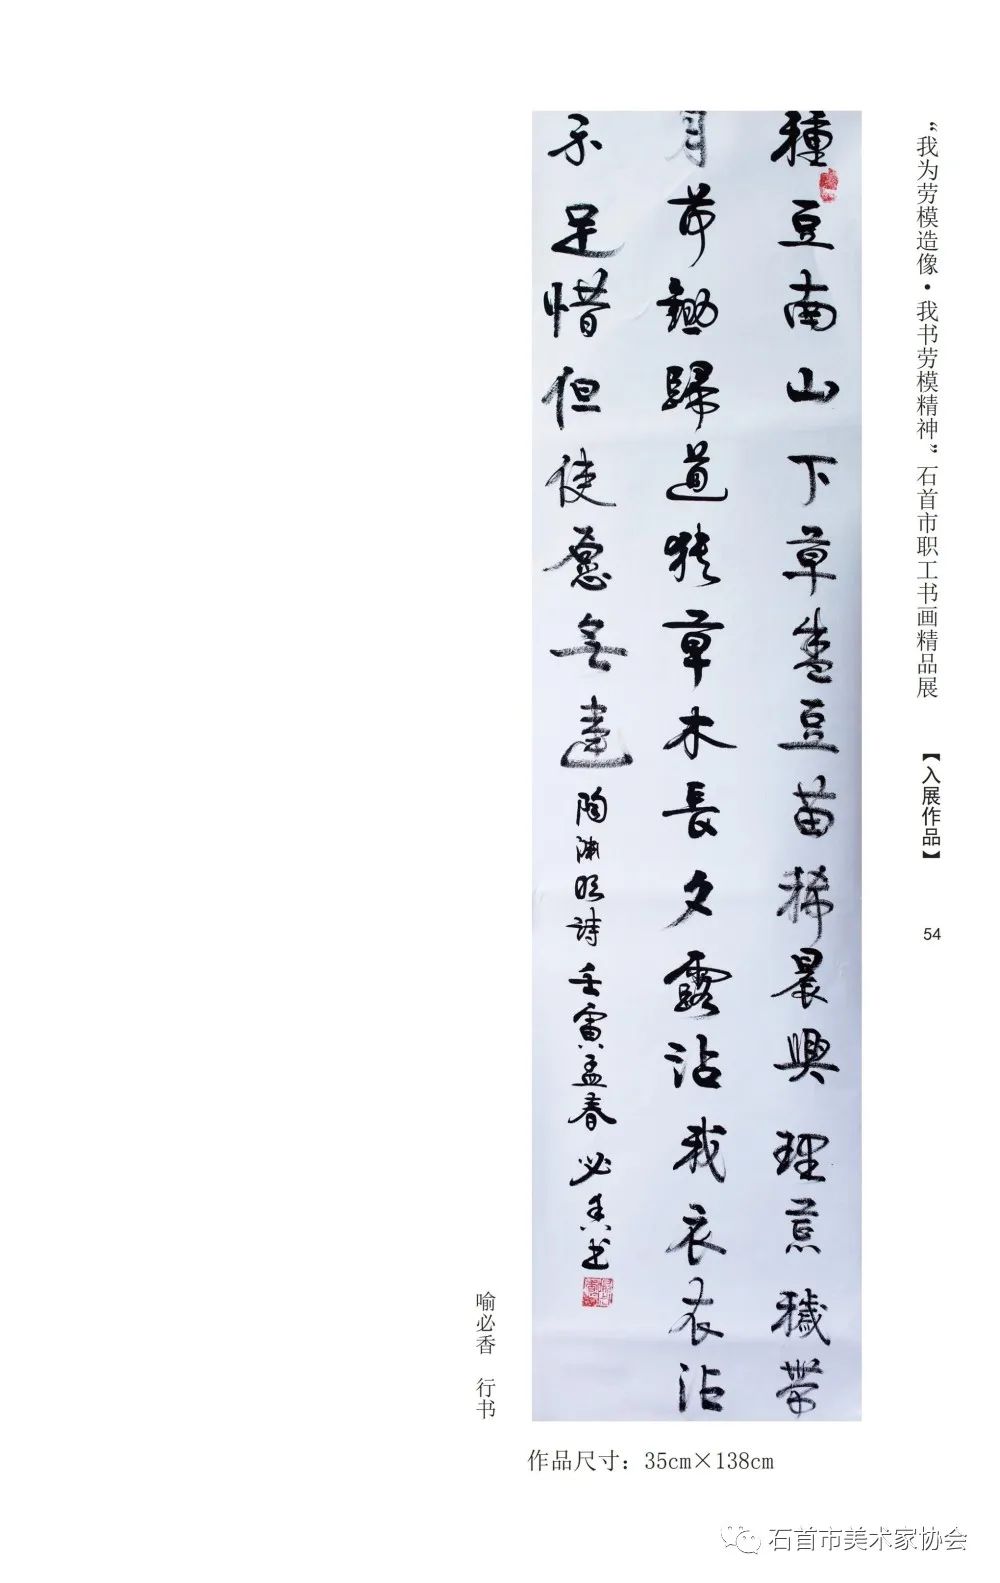 “我为劳模造像·我书劳模精神”石首市职工书画精品展
【入展作品】
54
種豆南山下草盛豆苗稀晨興理荒穢帶
月荷鋤歸道狹草木長夕露沾我衣衣沾
不足惜但使愿無違 陶淵明詩 壬寅孟春 必香书
喻必香 行书
作品尺寸：35cm×138cm
石首市美术家协会